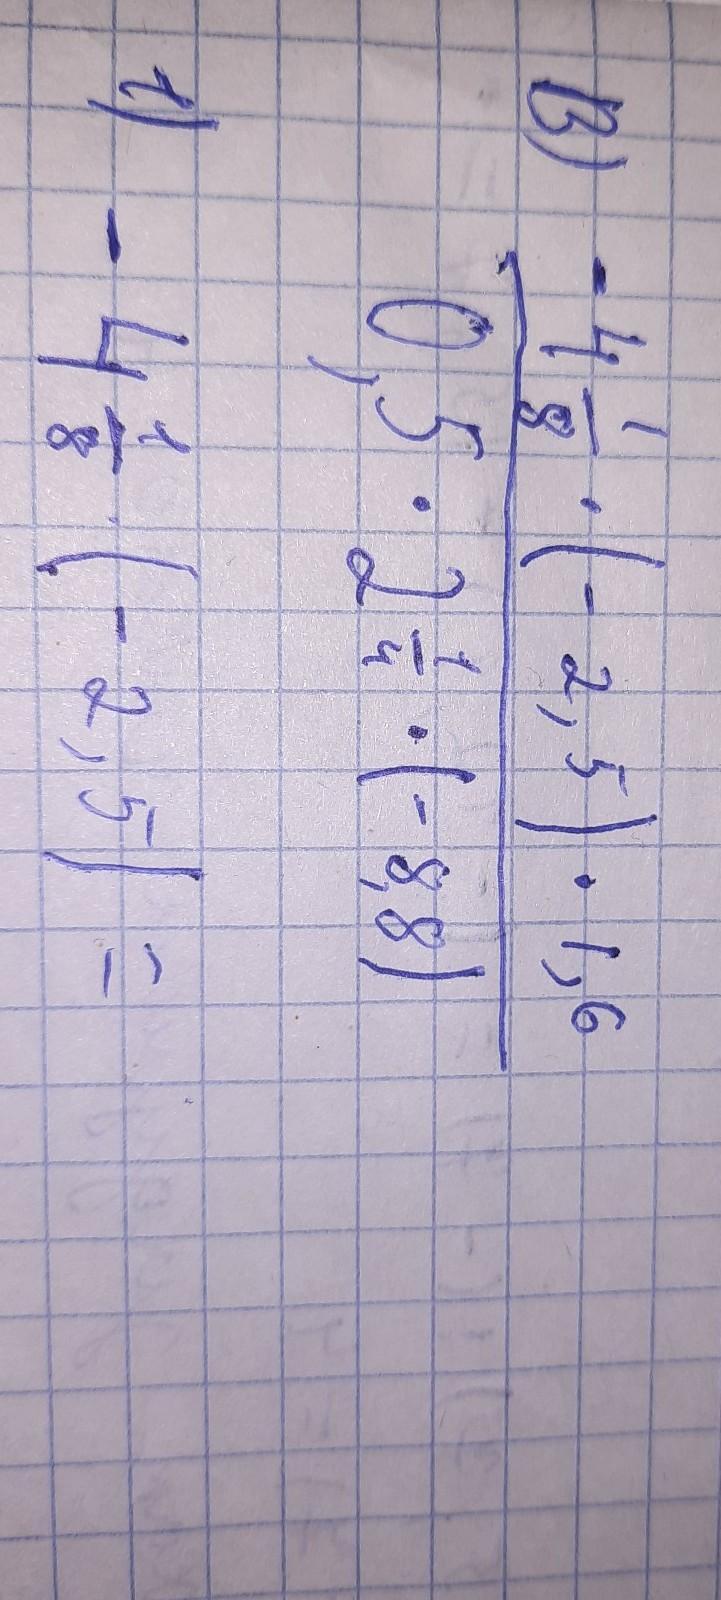 в) - 4 1/8 · (- 2,5) · 1,6
0,5 · 2 1/4 · (- 8,8)
1) - 4 1/8 · (- 2,5) =